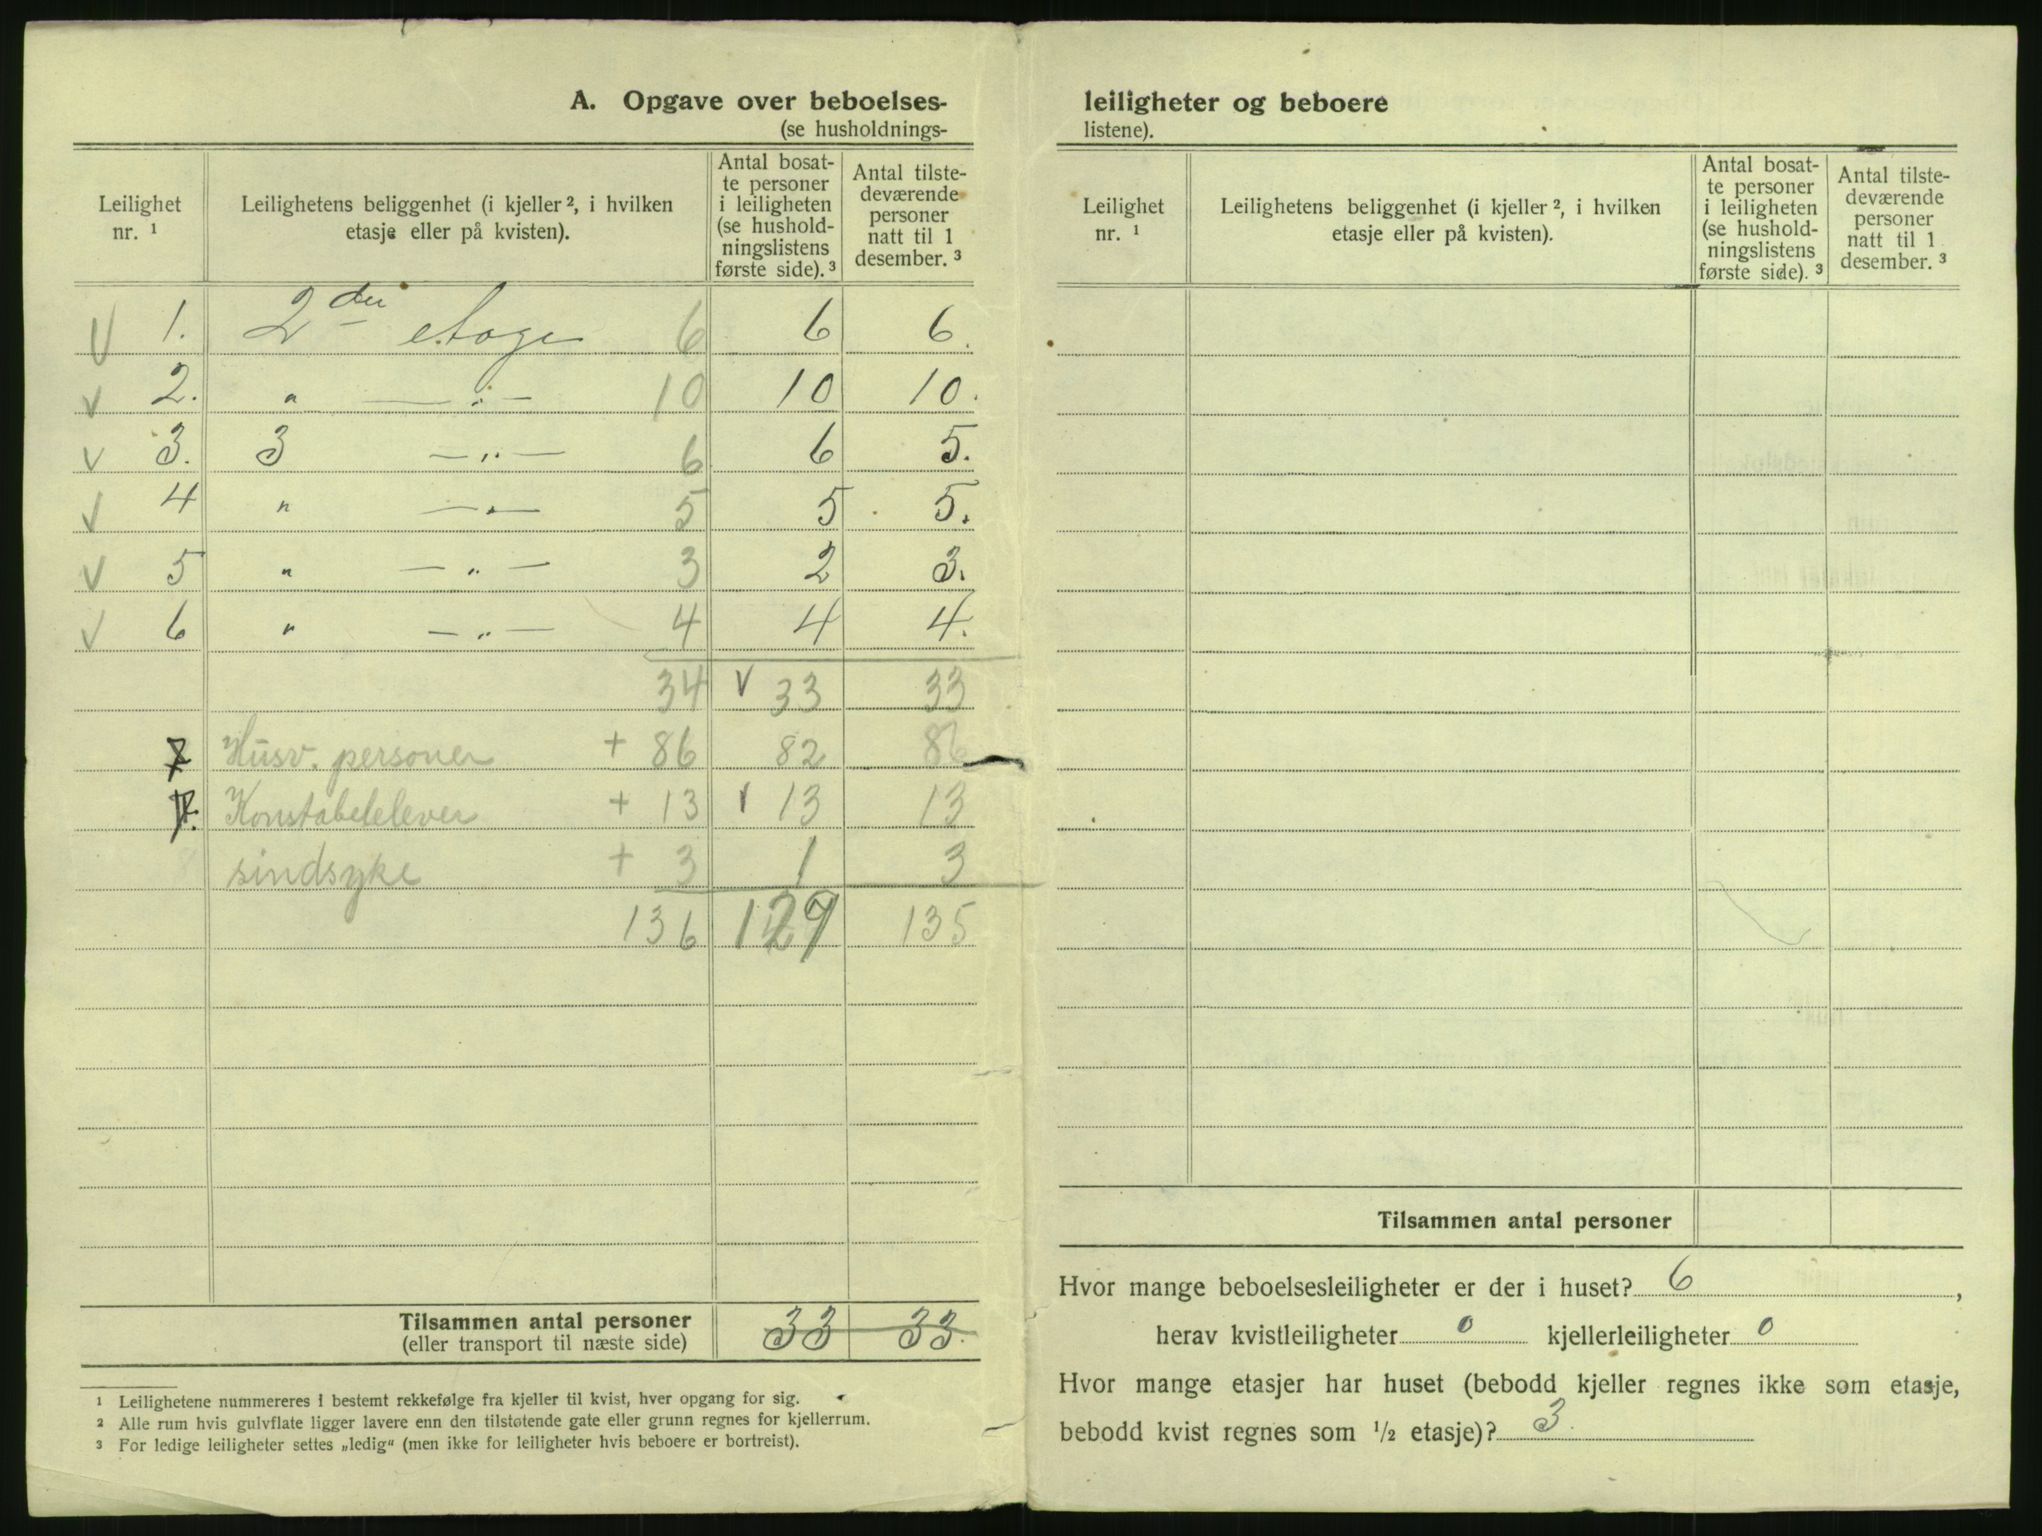 A. Opgave over beboelses-
(se husholdnings-
Leilighet nr. ¹
Leilighetens beliggenhet (i kjeller ², i hvilken etasje eller på kvisten).
Antal bosat-
te personer
i leiligheten
(se hushold-
ningslistens
første side). ³
Antal tilste-
deværende
personer
natt til 1
desember. ³
V 1. 2den etage 6 6 6.
V 2. " — " — 10 10 10.
V 3. 3 — " — 6 6 5.
V 4 " — " — 5 5 5.
V 5 " — " — 3 2 3.
V 6 " — " — 4 4 4.
34 V 33 33
Husv. personer + 86 82 86
Konstabelelever + 13 V 13 13
sindsyke + 3 1 3
136 129 135
Tilsammen antal personer 33 33.
(eller transport til næste side)
¹ Leilighetene nummereres i bestemt rekkefølge fra kjeller til kvist, hver opgang for sig.
² Alle rum hvis gulvflate ligger lavere enn den tilstøtende gate eller grunn regnes for kjellerrum.
³ For ledige leiligheter settes „ledig" (men ikke for leiligheter hvis beboere er bortreist).
leiligheter og beboere
listene).
Leilighet nr. ¹
Leilighetens beliggenhet (i kjeller ², i hvilken etasje eller på kvisten).
Antal bosat-
te personer
i leiligheten
(se hushold-
ningslistens
første side). ³
Antal tilste-
deværende
personer
natt til 1
desember. ³
Tilsammen antal personer
Hvor mange beboelsesleiligheter er der i huset? 6,
herav kvistleiligheter 0 kjellerleiligheter 0
Hvor mange etasjer har huset (bebodd kjeller regnes ikke som etasje,
bebodd kvist regnes som ½ etasje)? 3.